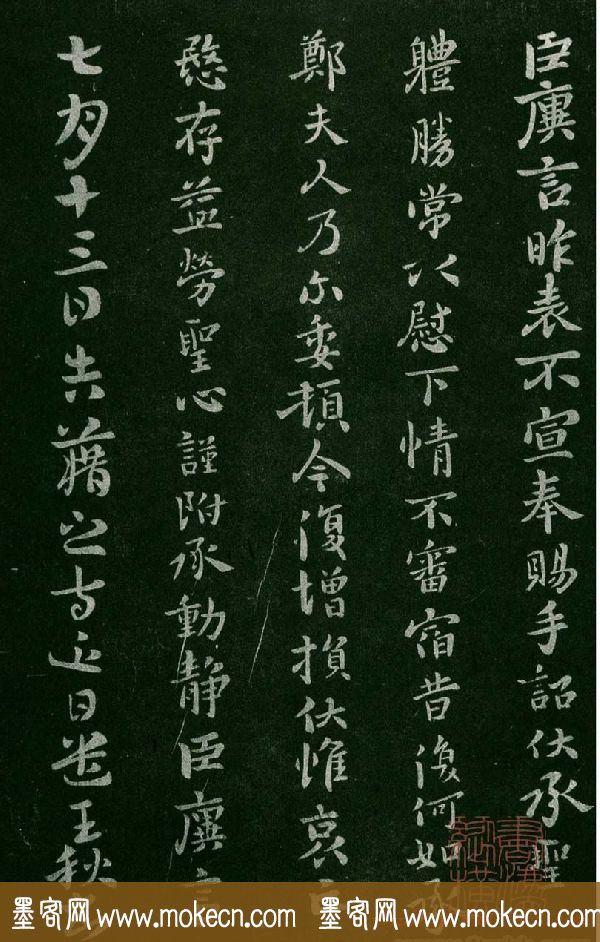 臣廙言昨表不宣奉賜手詔伏承聖
體勝常以慰下情不審宿昔復何如承
鄭夫人乃尔委頓今復增損伏惟哀
慜存益勞聖心謹附承動静臣廙言
七月十三日告藉之等近日遣王秋
墨客网 www.mokecn.com 墨客网 www.mokecn.com